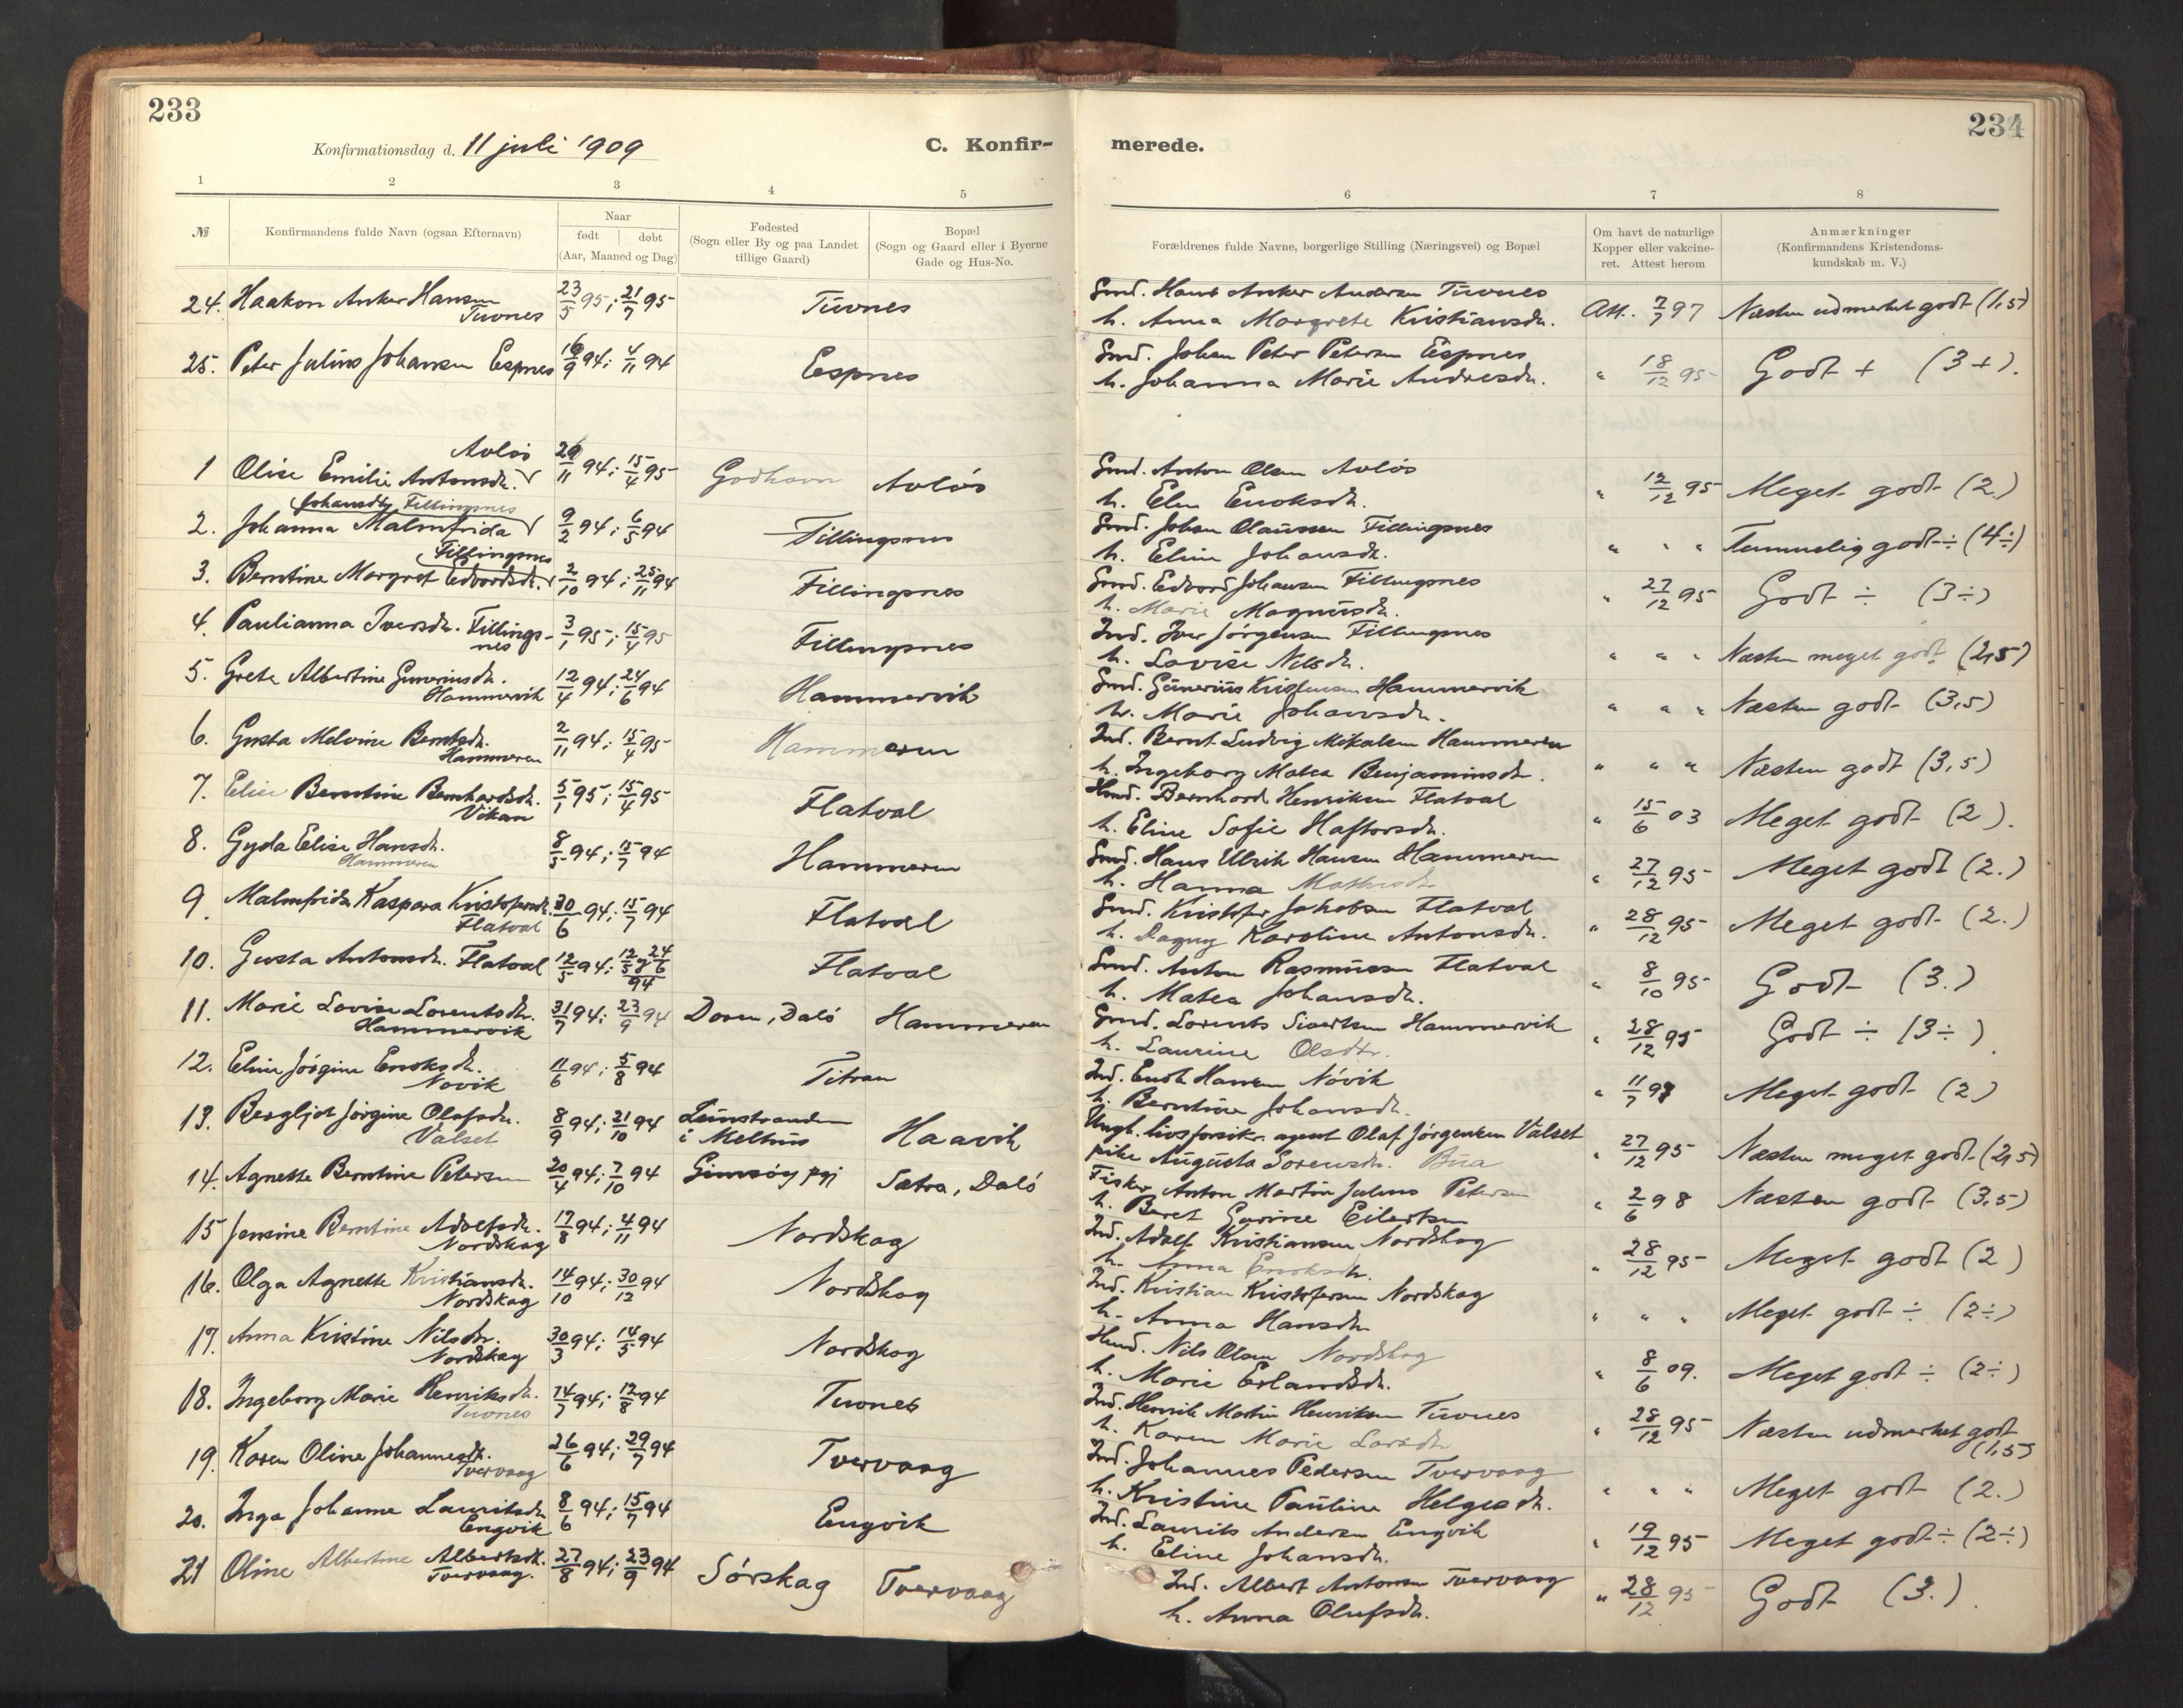 233
234
Konfirmationsdag d. 11 juli 1909
C. Konfir-
merede.
1 2 3 4 5 6 7 8
№
Konfirmandens fulde Navn (ogsaa Efternavn)
Naar
født | døbt
(Aar, Maaned og Dag)
Fødested
(Sogn eller By og paa Landet
tillige Gaard)
Bopæl
(Sogn og Gaard eller i Byerne
Gade og Hus-No.
Forældrenes fulde Navne, borgerlige Stilling (Næringsvei) og Bopæl
Om havt de naturlige
Kopper eller vakcine-
ret. Attest herom
Anmærkninger
(Konfirmandens Kristendoms-
kundskab m. V.)
24. Haakon Anker Hansen 23/5 95; 21/7 95 Tuvnes Smd. Hans Anker Andersen Tuvnes Att. 7/7 97 Næsten udmerket godt (1,5)
Tuvnes h. Anna Margrete Kristiansdr.
25. Peter Julius Johansen Espnes 16/9 94; 4/11 94 Espnes Smd. Johan Peter Petersen Espnes " 18/12 95 Godt + (3+).
h. Johanna Marie Andresdr.
Avløs
1 Olise Emilie Antonsdr. 11 94; 15/4 95 Godhavn Avløs Smd. Anton Olsen Avløs " 12/12 95 Meget godt (2.)
h. Elen Enoksdr.
Johansdtr, Fillingsnes
2. Johanna Malmfrida 9/2 94; 6/5 94 Fillingsnes Smd. Johan Olaussen Fillingsnes " " " Temmelig godt ÷ (4÷)
h. Eline Johansdr.
Fillingsnes
3. Berntine Margret Edvardsdr. 2/10 94; 25/11 94 Fillingsnes Smd. Edvard Johansen Fillingsnes " 27/12 95 Godt ÷ (3÷)
h. Marie Magnusdr.
4. Paulianna Iversdr. Fillings- 3/1 95; 15/4 95 Fillingsnes Ind. Iver Jørgensen Fillingsnes " " " Næsten meget godt (2,5)
nes h. Lovise Nilsdr.
5. Grete Albertine Guneriusdr. 12/4 94; 24/6 94 Hammervik Smd. Gunerius Kristensen Hammervik " " " Næsten godt (3,5)
Hammervik h. Marie Johansdr.
6. Gusta Melvine Berntsdr. 2/11 94; 15/4 95 Hammeren Ind. Bernt Ludvig Mikalsen Hammeren " " " Næsten godt (3,5)
Hammeren h. Ingeborg Malea Benjaminsdr.
7. Elise Berntine Bernhardsdr. 5/1 95; 15/4 95 Flatval Hmd. Bernhard Henriksen Flatval " 15/6 03 Meget godt (2).
Vikan h. Eline Sofie Haftorsdr.
8. Gyda Elise Hansdr. 8/5 94; 15/7 94 Hammeren Smd. Hans Ulrik Hansen Hammeren " 27/12 95 Meget godt (2.)
Hammeren h. Hanna Mathisdr
9. Malmfrida Kaspara Kristofersdr. 30/6 94; 15/7 94 Flatval Smd. Kristofer Jakobsen Flatval " 28/12 95 Meget godt (2.)
Flatval h. Dagny Karoline Antonsdr.
10. Gusta Antonsdr. Flatval 12/5 94; 12/5 & 24/6 94 Flatval Smd. Anton Rasmussen Flatval " 8/10 95 Godt (3.)
h. Malea Johansdr.
11. Marie Lovise Lorentsdr. 31/7 94; 23/9 94 Dosen, Dalø Hammeren Smd. Lorents Sivertsen Hammervik " 28/12 95 Godt ÷ (3÷)
Hammervik h. Laurine Olsdtr.
12. Eline Jørgine Enoksdr. 11/6 94; 5/8 94 Titran Ind. Enok Hansen Nøvik " 11/7 Meget godt (2)
Novik h. Berntine Johansdr.
13. Bergljot Jørgine Olafsdr. 8/9 94; 21/10 94 Leinstranden Haavik Ungk. livsforsikr. agent Olaf Jørgensen Valset " 27/12 95 Næsten meget godt (2,5)
Valset i Melhus pike Augusta Sorensdr. Bua
14. Agnette Berntine Petersen 20/4 94; 7/10 94 Gimsøy pgj Sætra, Dalø Fisker Anton Martin Julius Petersen " 2/6 98 Næsten godt (3,5)
h. Beret Gurine Eilertsen
15 Jensine Berntine Adolfsdr. 17/8 94; 4/11 94 Nordskag Ind. Adolf Kristiansen Nordskag " 28/12 95 Meget godt (2)
Nordskag h. Anna Enoksdr.
16. Olga Agnette Kristiansdr. 14/10 94; 30/12 94 Nordskag Ind. Kristian Kristofersen Nordskag " " " Meget godt ÷ (2÷)
Nordskag h. Anna Hansdr
17. Anna Kristine Nilsdr. 30/3 94; 14/5 94 Nordskag Hmd. Nils Olsen Nordskag " 8/6 09. Meget godt ÷ (2÷)
Nordskag h. Marie Erlandsdr.
18. Ingeborg Marie Henriksdr. 14/7 94; 12/8 94 Tuvnes Ind. Henrik Martin Henriksen Tuvnes " 28/12 95 Næsten udmerket godt
Tuvnes h. Karen Marie Larsdr (1,5)
19. Karen Oline Johannesdr. 26/6 94; 29/7 94 Tvervaag Ind. Johannes Pedersen Tvervaag " " " Meget godt (2.)
Tvervaag h. Kristine Pauline Helgesdr.
20. Inga Johanne Lauritsdr 8/6 94; 15/7 94 Engvik Ind. Laurits Andersen Engvik " 19/12 95 Meget godt ÷ (2÷)
Engvik h. Eline Johansdr.
21 Oline Albertine Albertsdr. 27/8 94; 23/9 94 Sørskag Tvervaag Ind. Albert Antonsen Tvervaag " 28/12 95 Godt (3.).
Tvervaag. h. Anna Olufsdr.